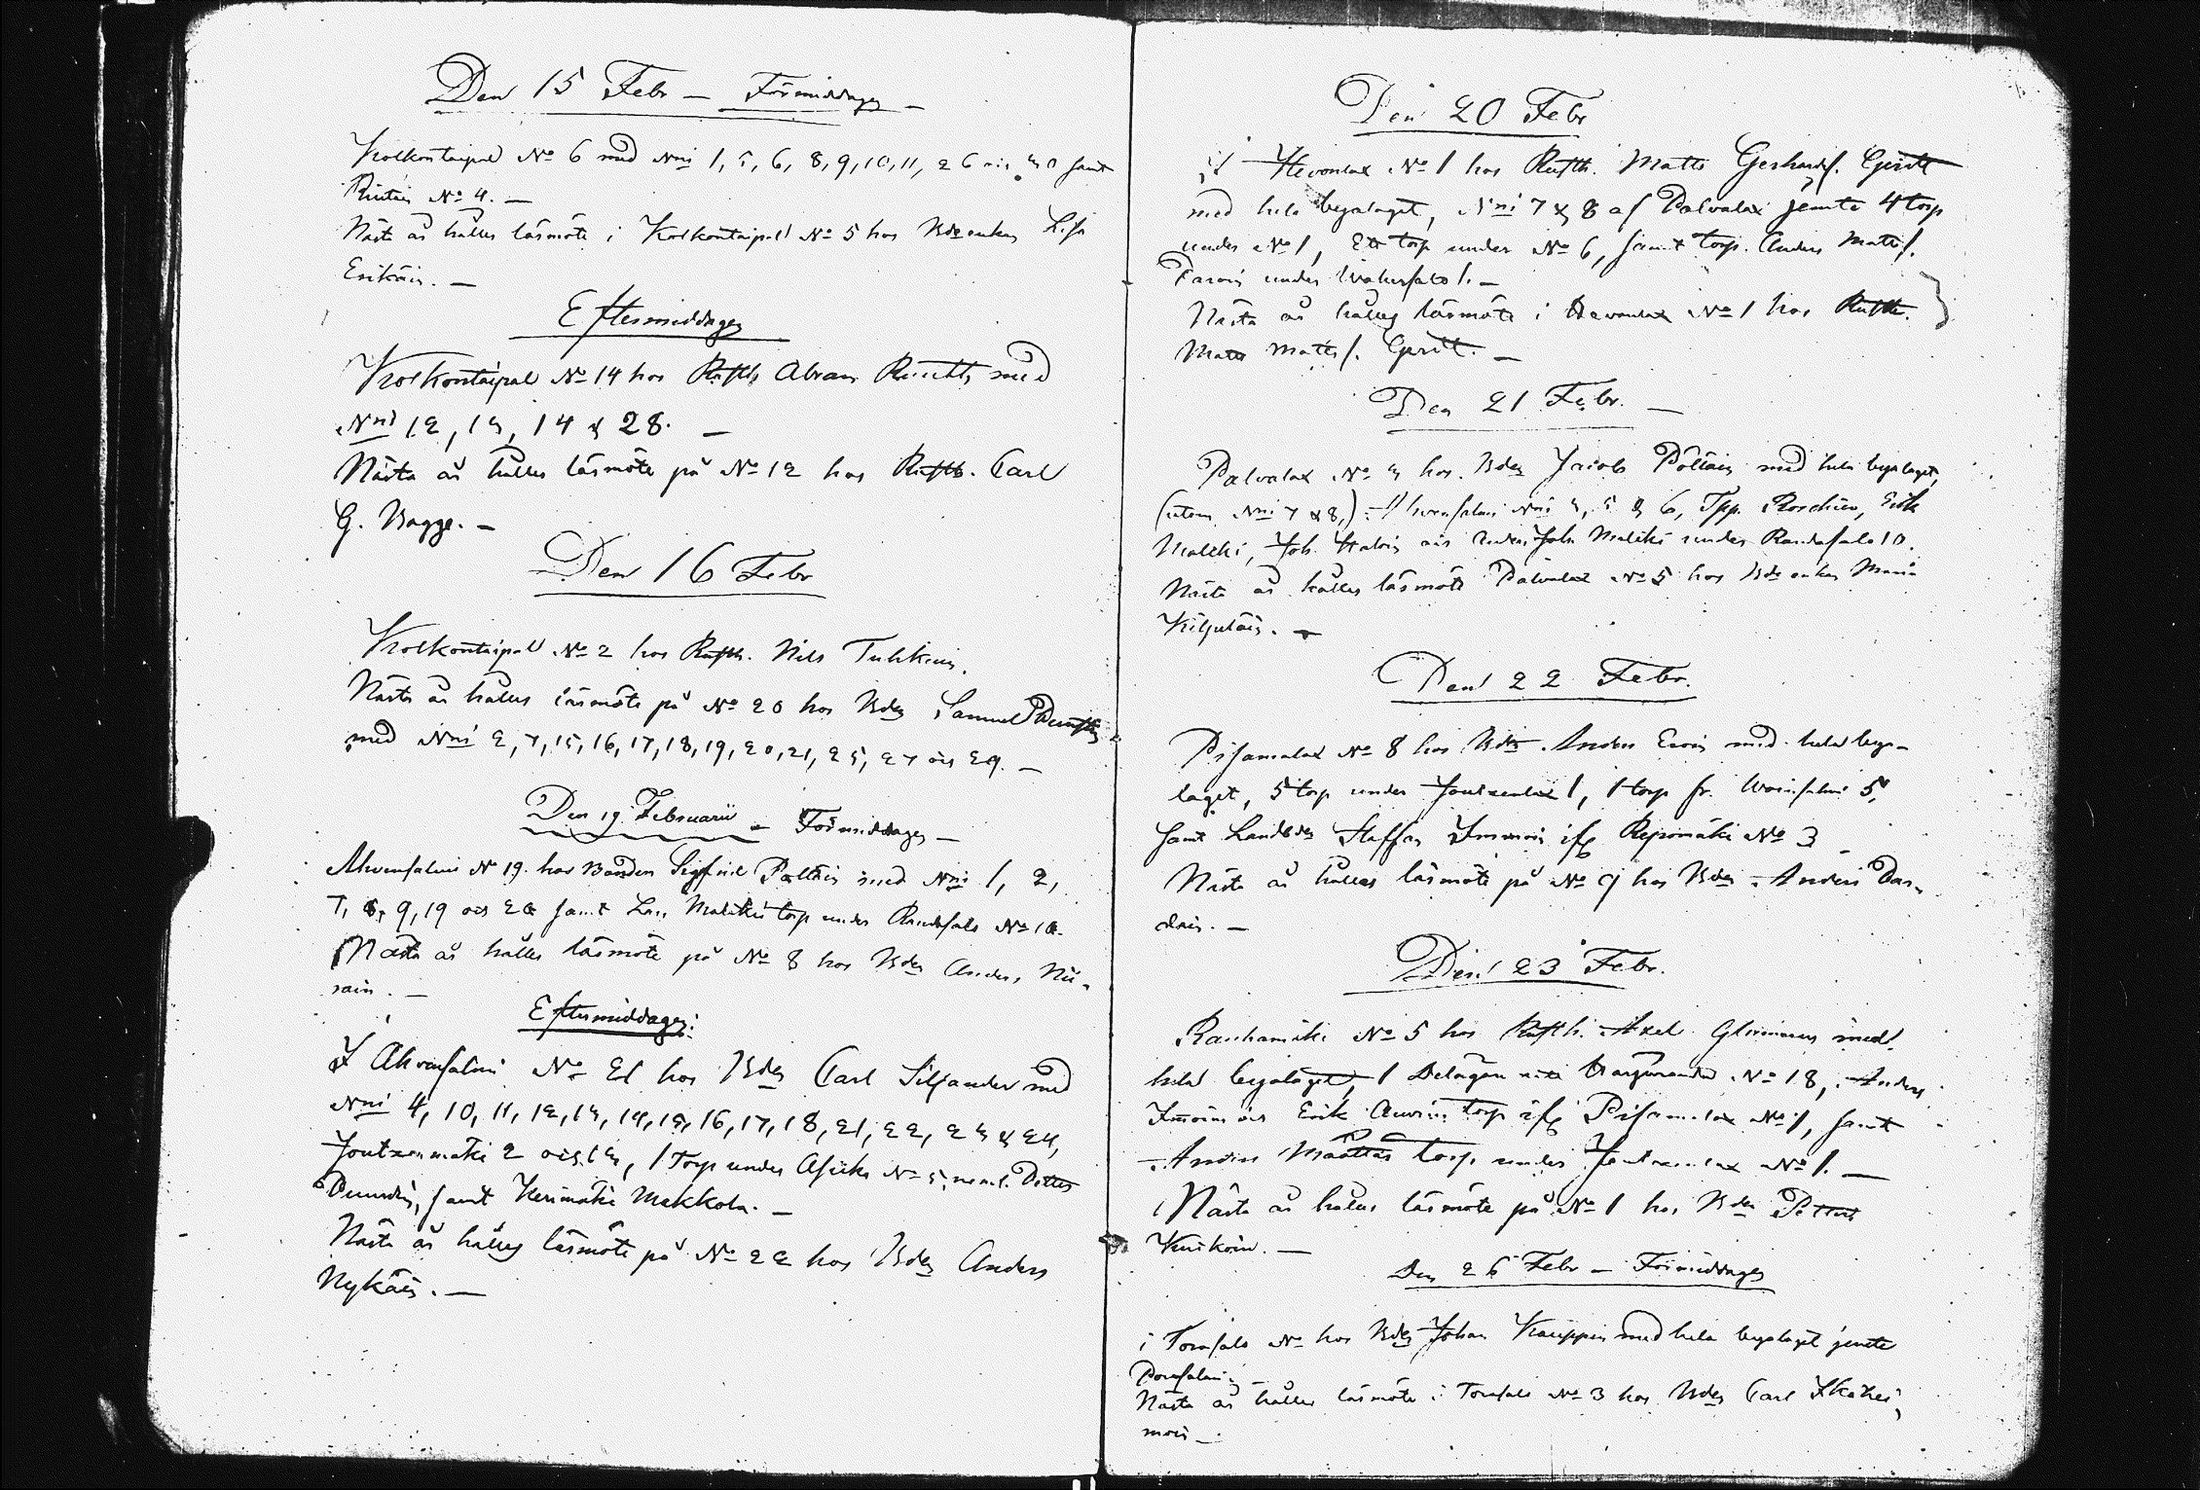 Den 15 Febr — Förmiddagen —
Kolkontaipal No 6 med Nris 1, 5, 6, 8, 9, 10, 11, 26 och 30 samt
No 4. —
Nästa år hålles läsmöte i Kolkontaipal No 5 hos Bdeenkan Lisa
Eskäin. —
Eftermiddagen
Kolkontaipal No 14 hos Rusth. Abram med
Nris 12, 13, 14 & 28. —
Nästa år hålles läsmöte på No 12 hos Rusth. Carl
G. Bagge. —
Den 16 Febr
Kolkontaipal No 2 hos Rusth. Nils Tuhkain.
Nästa år hålles läsmöte på No 20 hos Bden Samuel
med Nris 2, 7, 15, 16, 17, 18, 19, 20, 21, 25, 27 och 29. —
Den 19 Februarii — Förmiddagen —
Ahvensalmi No 19. hos Bonden Sigfrid Pölläin med Nris 1, 2,
7, 8, 9, 19 och 20 samt Lars torp under Randasalo No 10.
Nästa år hålles läsmöte på No 8 hos Bden Anders Nü-
rain. —
Eftermiddagen:
I Ahvensalmi No 21 hos Bden Carl Siljander med
Nris 4, 10, 11, 12, 13, 14, 15, 16, 17, 18, 21, 22, 23 & 24,
Joutzenmäki 2 och 13, 1 Torp under No 5, neml. Petter
samt Kerimäki Makkola. —
Nästa år hålles läsmöte på No 22 hos Bden Anders
Nykäin. —
Den 20 Febr
i Hevonlax No 1 hos Rusth. Matts Gerhardss. Gerdt
med hela byalaget, Nris 7 & 8 af Palvalax jemte 4 torp
under No 1, Ett torp under No 6, samt torp. Anders Mattss.
Parvin under 1. —
Nästa år hålles läsmöte i Hevonlax No 1 hos Rusth.
Matts Mattss. Gerdt. —
Den 21 Febr. —
Palvalax No 3 hos Bden Jacob Pölläin med hela byalaget,
(utom Nris 7 & 8,) Ahvensalmi Nris 3, 5 & 6, Tpp. Erik
Malcki, Joh. och Anders Joh. Malcki under Randasalo 10.
Nästa år hålles läsmöte Palvalax No 5 hos Bde enkan Maria
Kiljuläin. —
Den 22 Febr.
Pisamalax No 8 hos Bden Anders med hela bya-
laget, 5 torp under Joutzenlax 1, 1 torp fr. 5,
samt Landbden Staffan Immoin ifr. Reponmäki No 3
Nästa år hålles läsmöte på No 9 hos Bden Anders Par-
dain. —
Den 23 Febr.
Rauhamäki No 5 hos Rusth. Axel med
hela byalaget, 1 Delägare uti No 18, Anders
Immoin och Erik Auvin torp ifr. Pisamalax No 1, samt
Anders torp under Joutzenlax No 1. —
Nästa år hålles läsmöte på No 1 hos Bden Petter
Kuikoin. —
Den 26 Febr — Förmiddagen
i Torasalo No hos Bden Johan Kauppin med hela byalaget jemte
Porosalmi.
Nästa år hålles läsmöte i Torasalo No 3 hos Bden Carl Ikähei-
moin —